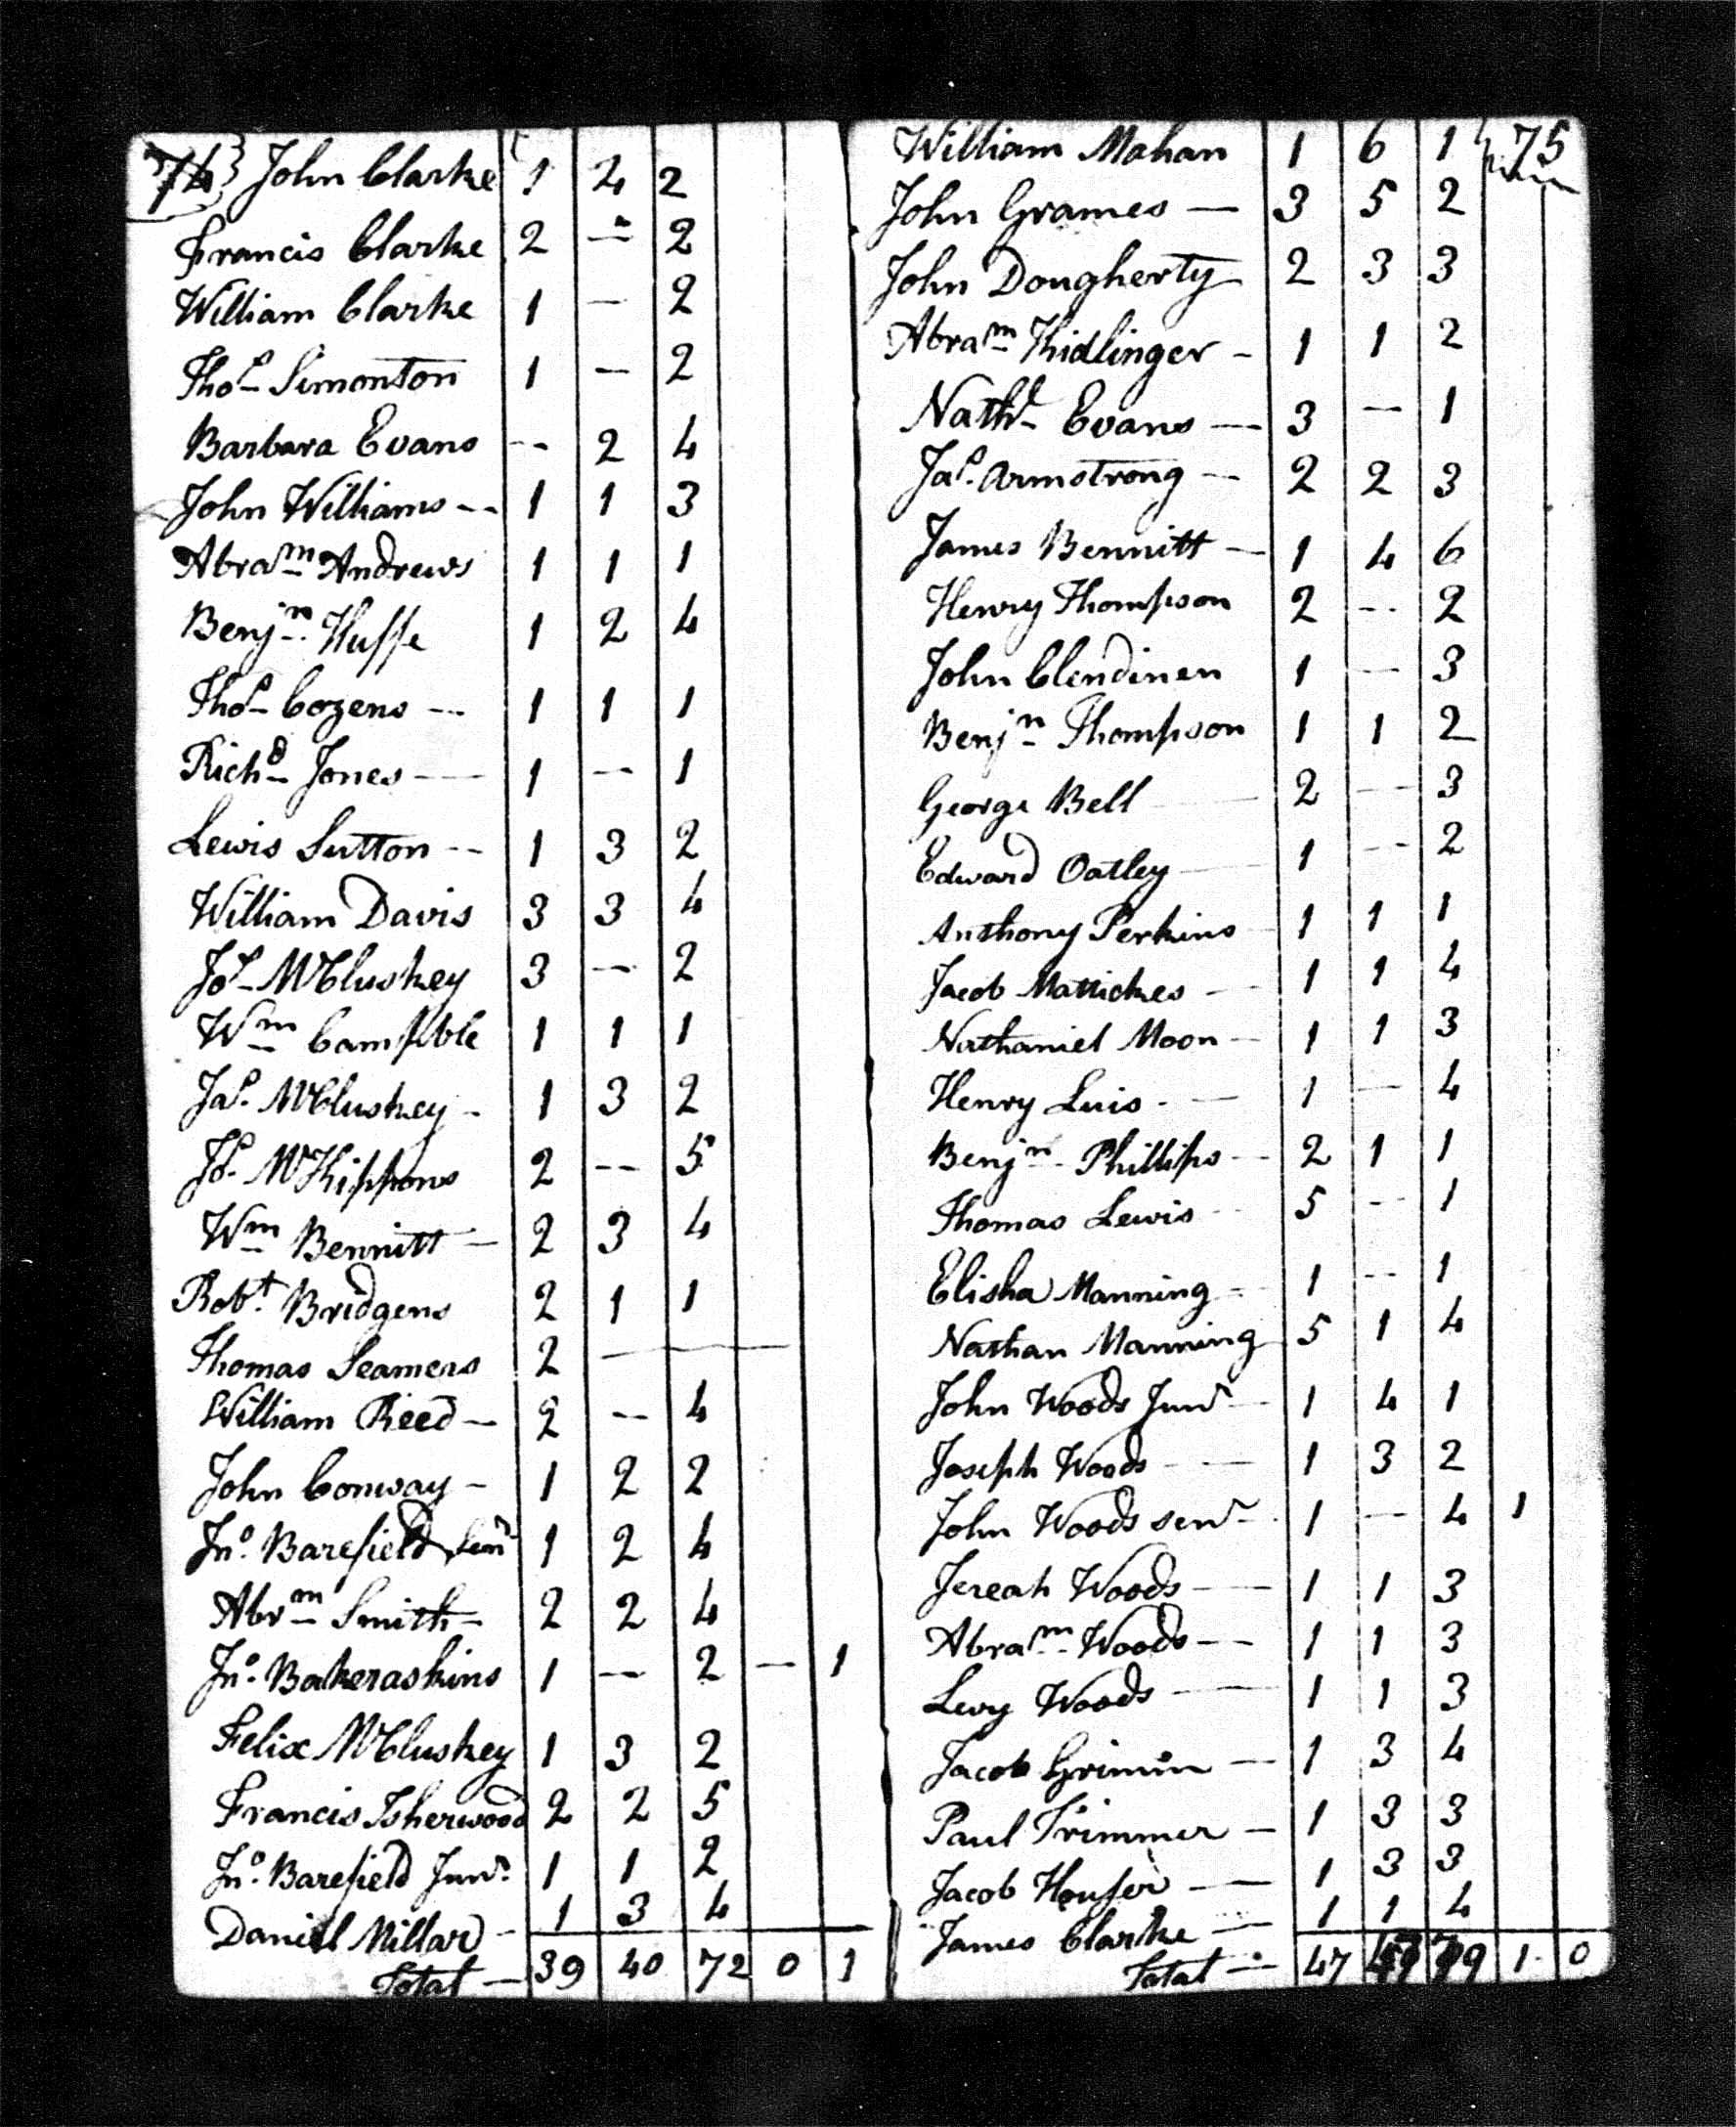 74} John Clarke 1 4 2
Francis Clarke 2 — 2
William Clarke 1 — 2
Thos. Simonton 1 — 2
Barbara Evans -- 2 4
John Williams -- 1 1 3
Abram Andrews 1 1 1
Benjn. Huffe 1 2 4
Thos. Cozens -- 1 1 1
Richd. Jones — 1 — 1
Lewis Sutton -- 1 3 2
William Davis 3 3 4
Jos. McCluskey 3 — 2
Wm Campble 1 1 1
Jas. McCluskey - 1 3 2
Js. McKippons 2 -- 5
Wm Bennitt — 2 3 4
Robt. Bridgens 2 1 1
Thomas Seamens 2 —
William Reed — 2 -- 4
John Conway - 1 2 2
Jno. Barefield Senr 1 2 4
Abrm Smith - 2 2 4
Jno. Bakeraskins 1 — 2 — 1
Felix McCluskey 1 3 2
Francis Isherwood 2 2 5
Jno. Barefield Junr. 1 1 2
Daniel Millar - 1 3 4
Total — 39 40 72 0 1
William Mahan 1 6 1 75
John Grames — 3 5 2
John Dougherty 2 3 3
Abram Kidlinger - 1 1 2
Nathl. Evans — 3 — 1
Jas. Armstrong -- 2 2 3
James Bennitt — 1 4 6
Henry Thompson 2 -- 2
John Clendinen 1 — 3
Benjn Thompson 1 1 2
George Bell — 2 -- 3
Edward Oatley — 1 -- 2
Anthony Perkins 1 1 1
Jacob Mattickes — 1 1 4
Nathaniel Moon -- 1 1 3
Henry Luis - — 1 — 4
Benjn. Phillips -- 2 1 1
Thomas Lewis -- 5 -- 1
Elisha Manning - 1 -- 1
Nathan Manning 5 1 4
John Woods Junr — 1 4 1
Joseph Woods — 1 3 2
John Woods senr - 1 — 4 1
Jereah Woods — 1 1 3
Abram Woods -- 1 1 3
Levy Woods — 1 1 3
Jacob Grimin — 1 3 4
Paul Trimmer — 1 3 3
Jacob Houser — 1 3 3
James Clarke — 1 1 4
Total -- 47 79 1 0